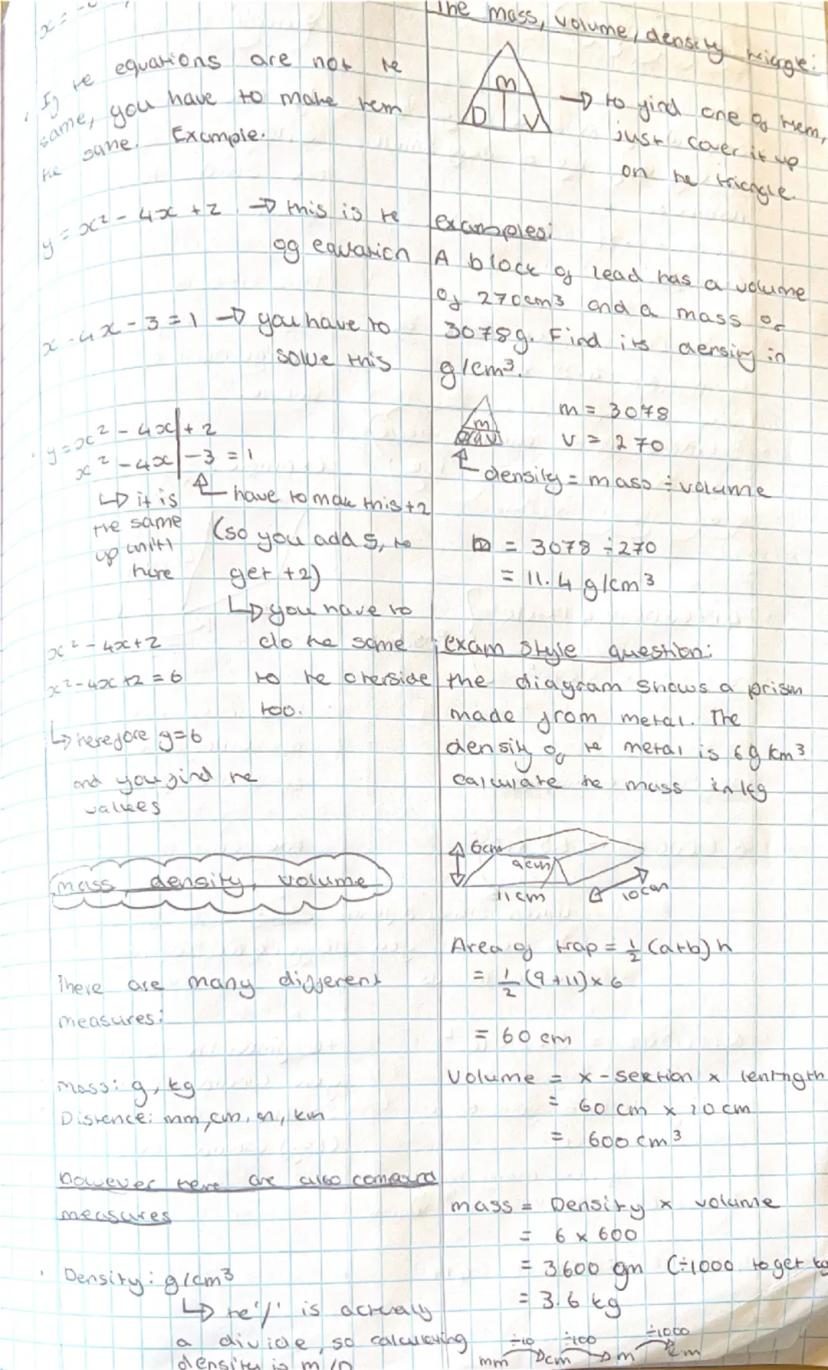 x =
· If the equations are not the
same, you have to make them
the same. Example.
y = x² - 4x + 2 → this is the
og equation
x - 4x - 3 = 1 → you have to
solve this
y = x² - 4x + 2
x² - 4x - 3 = 1
↳ it is
the same
up until
here
have to make this +2
(so you add 5, to
get +2)
↳ you have to
do the same
to the otherside
too.
x² - 4x + 2
x² - 4x + 2 = 6
↳ therefore y = 6
and you find the
values
mass density, volume
There are many different
measures:
mass: g, kg
Distence: mm, cm, m, km
however there are also compound
measures
· Density: g/cm³
↳ the '/' is actually
a divide, so calculating
density is m/
The mass, volume, density triangle:
m
D V
→ to find one of them,
just cover it up
on the triangle.
examples:
A block of lead has a volume
of 270cm³ and a mass of
3078g. Find its density in
g/cm³.
m
V
m = 3078
v = 270
density = mass ÷ volume
D = 3078 ÷ 270
= 11.4 g/cm³
exam style question:
the diagram shows a prism
made from metal. The
density of the metal is 6g/cm³
calculate the mass in kg
6cm
9cm
11cm
10cm
Area of trap = ½ (a+b) h
= ½ (9+11) × 6
= 60 cm
Volume = x-section × lentngth
= 60 cm × 10 cm
= 600 cm³
mass = Density × volume
= 6 × 600
= 3600 gm (÷1000 to get kg
= 3.6 kg
÷10 ÷100 ÷1000
mm cm m km